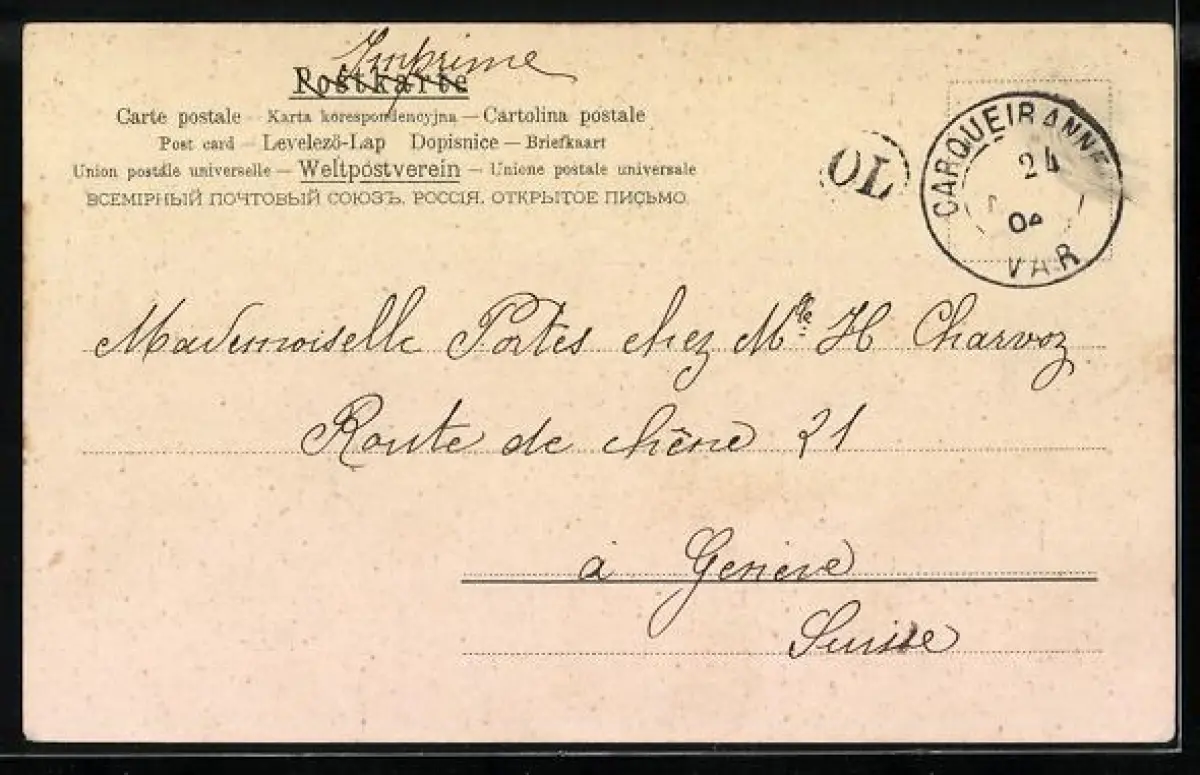 Imprimé
Postkarte
Carte postale — Karta korespondencyjna — Cartolina postale
Post card — Levelező-Lap Dopisnice — Briefkaart
Union postale universelle — Weltpostverein — Unione postale universale
ВСЕМІРНЫЙ ПОЧТОВЫЙ СОЮЗЪ. РОССІЯ. ОТКРЫТОЕ ПИСЬМО.
OL
CARQUEIRANNE
24
04
VAR
Mademoiselle Portes chez Mlle H Charvoz
Route de chêne 21
à Genève
Suisse